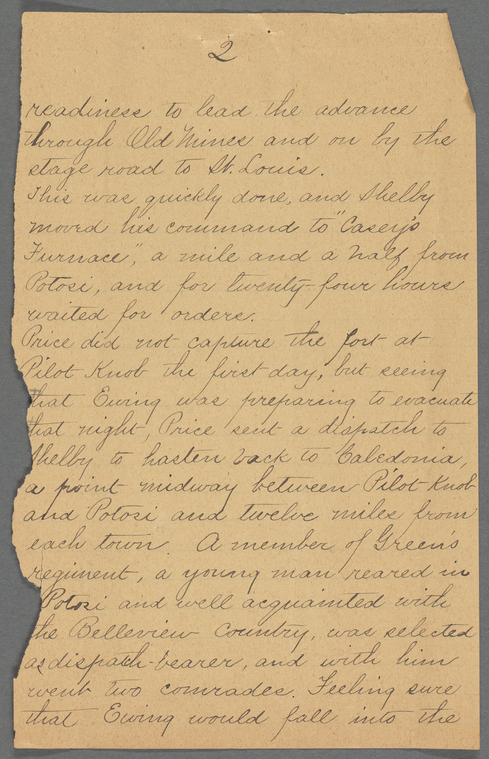 2
readiness to lead the advance
through Old Mines and on by the
stage road to St. Louis.
This was quickly done, and Shelby
moved his command to "Casey's
Furnace", a mile and a half from
Potosi, and for twenty-four hours
waited for orders.
Price did not capture the fort at
Pilot Knob the first day, but seeing
that Ewing was preparing to evacuate
that night, Price sent a dispatch to
Shelby to hasten back to Caledonia,
a point midway between Pilot Knob
and Potosi and twelve miles from
each town. A member of Green's
regiment, a young man reared in
Potosi and well acquainted with
the Belleview Country, was selected
as dispatch-bearer, and with him
went two comrades. Feeling sure
that Ewing would fall into the